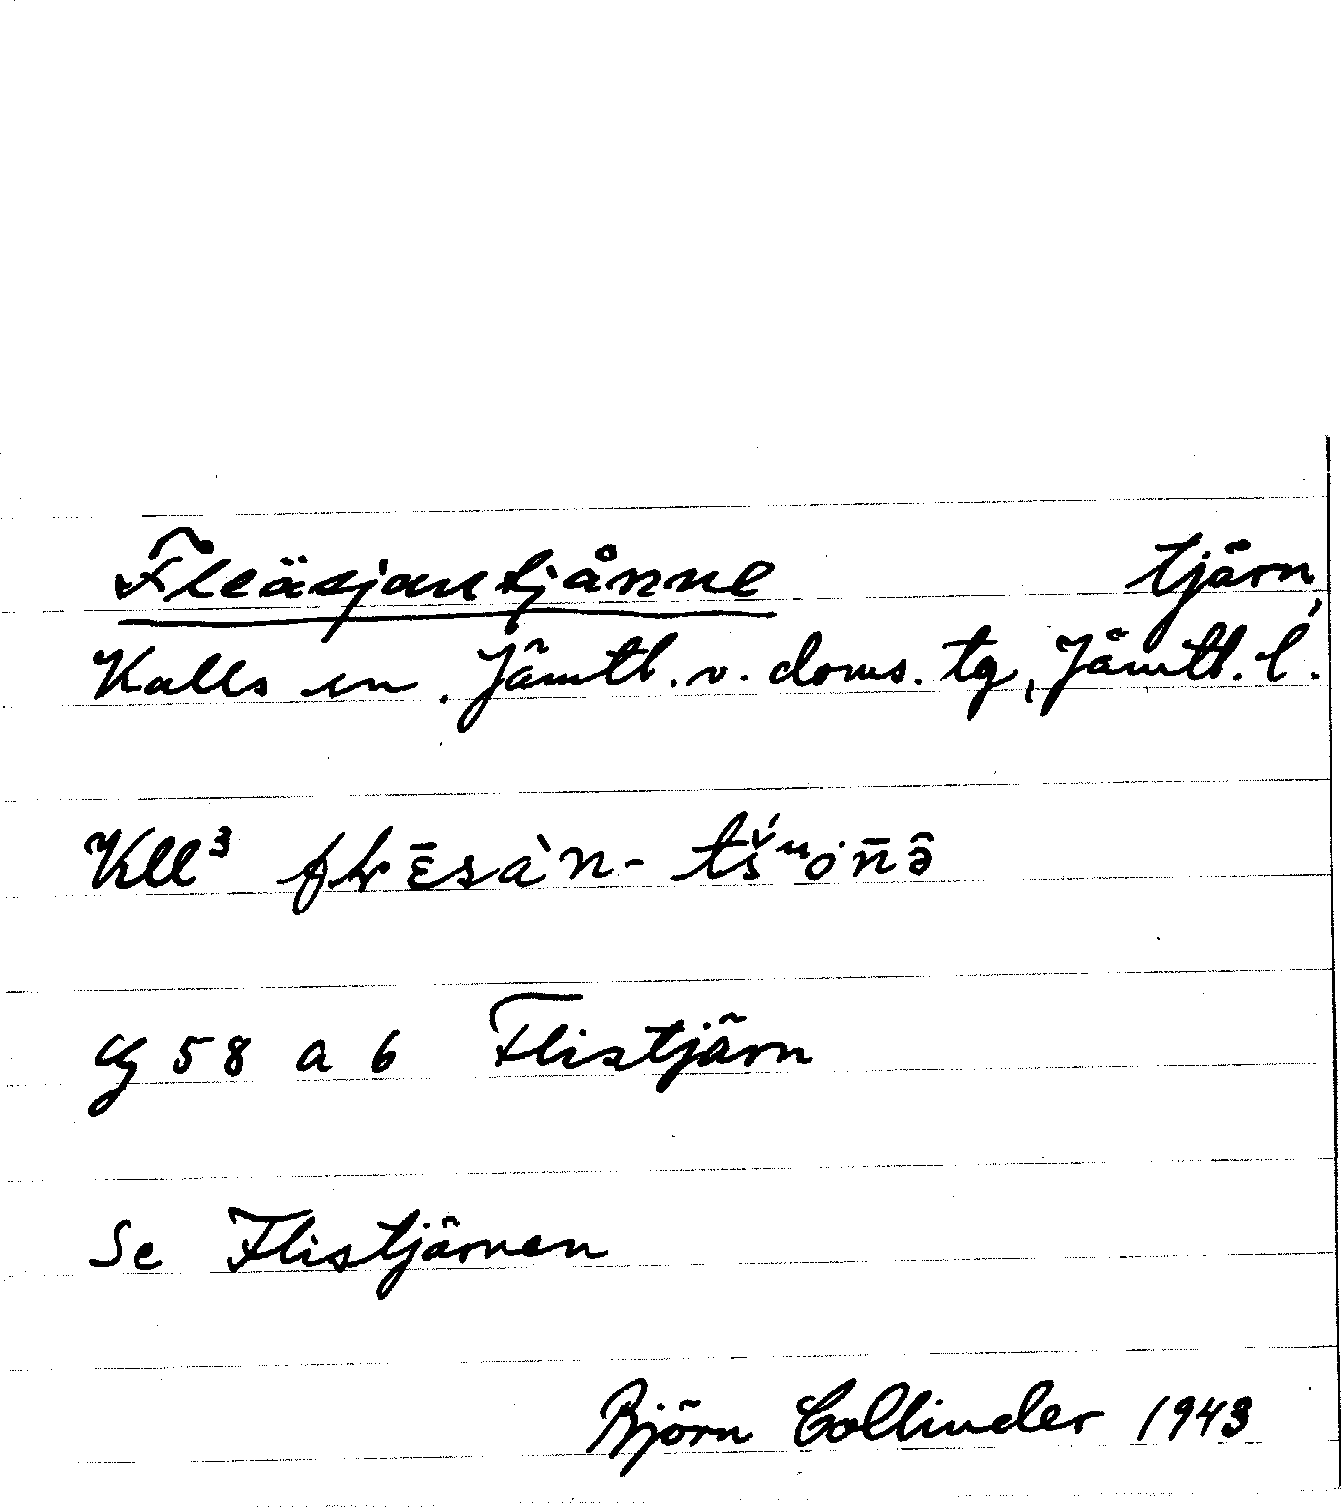 Fleäsjantjånne tjärn,
Kalls sn. Jämtl. v. doms. tg, Jämtl. l.
Kll³
58 a b Flistjärn
Se Flistjärnen
Björn Collinder 1943